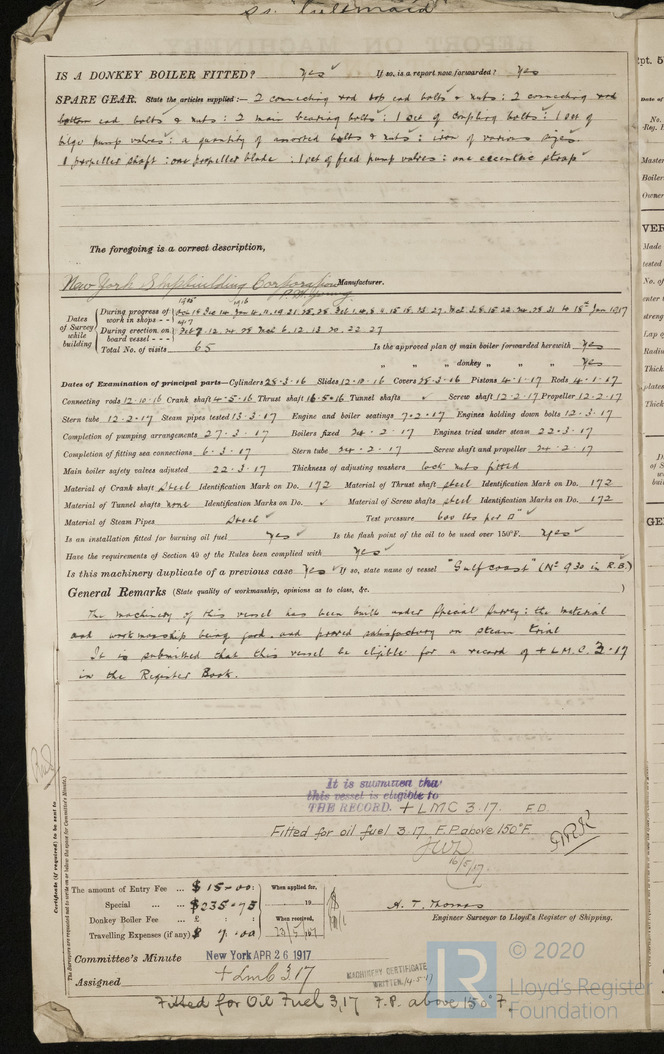 ss. "Gulfmaid"
IS A DONKEY BOILER FITTED? Yes If so, is a report now forwarded? Yes
SPARE GEAR. State the articles supplied:— 2 connecting rod top end bolts & nuts: 2 connecting rod
bottom end bolts & nuts: 2 main bearing bolts: 1 set of coupling bolts: 1 set of
bilge pump valves: a quantity of assorted bolts & nuts: iron of various sizes.
1 propeller shaft: one propeller blade: 1 set of feed pump valves: one eccentric strap
The foregoing is a correct description,
New York Shipbuilding Corporation Manufacturer.
Dates of Survey while building
During progress of work in shops - -
1915 1916
1917
During erection on board vessel - - - Feb 7. 12. 24. 28 Mch 6. 12. 13. 20. 22. 27
Total No. of visits 65 Is the approved plan of main boiler forwarded herewith Yes
" " " donkey " " " Yes
Dates of Examination of principal parts—Cylinders 28.3.16 Slides 12.10.16 Covers 28.3.16 Pistons 4.1.17 Rods 4.1.17
Connecting rods 12.10.16 Crank shaft 4.5.16 Thrust shaft 16.5.16 Tunnel shafts Screw shaft 12.2.17 Propeller 12.2.17
Stern tube 12.2.17 Steam pipes tested 13.3.17 Engine and boiler seatings 7.2.17 Engines holding down bolts 12.3.17
Completion of pumping arrangements 27.3.17 Boilers fixed 24.2.17 Engines tried under steam 22.3.17
Completion of fitting sea connections 6.3.17 Stern tube 24.2.17 Screw shaft and propeller 24.2.17
Main boiler safety valves adjusted 22.3.17 Thickness of adjusting washers lock nuts fitted
Material of Crank shaft Steel Identification Mark on Do. 172 Material of Thrust shaft steel Identification Mark on Do. 172
Material of Tunnel shafts none Identification Marks on Do. Material of Screw shafts steel Identification Marks on Do. 172
Material of Steam Pipes Steel Test pressure 600 lbs per □"
Is an installation fitted for burning oil fuel Yes Is the flash point of the oil to be used over 150°F. Yes
Have the requirements of Section 49 of the Rules been complied with Yes
Is this machinery duplicate of a previous case Yes If so, state name of vessel "Gulfcoast" (No 930 in R.B.)
General Remarks (State quality of workmanship, opinions as to class, &c. )
The machinery of this vessel has been built under Special Survey: the material
and workmanship being good. and proved satisfactory on steam trial
It is submitted that this vessel be eligible for a record of + L.M.C. 3.17
in the Register Book.
It is submitted that
this vessel is eligible to
THE RECORD. + LMC 3.17. F.D.
Fitted for oil fuel 3.17. F.P. above 150°F.
16/5/17
Certificate (if required) to be sent to
The Surveyors are requested not to write on or below the space for Committee's Minute.
The amount of Entry Fee ... $ 15.00: When applied for,
Special ... ... $ 235.75 19
Donkey Boiler Fee ... £ : : When received,
Travelling Expenses (if any) $ 7.00 23/5/17
H. T. Thomas
Engineer Surveyor to Lloyd's Register of Shipping.
Committee's Minute New York APR 26 1917
Assigned + Lmb 3.17
MACHINERY CERTIFICATE
WRITTEN
Fitted for Oil Fuel 3,17 F.P. above 150° F.
© 2020
Lloyd's Register
Foundation